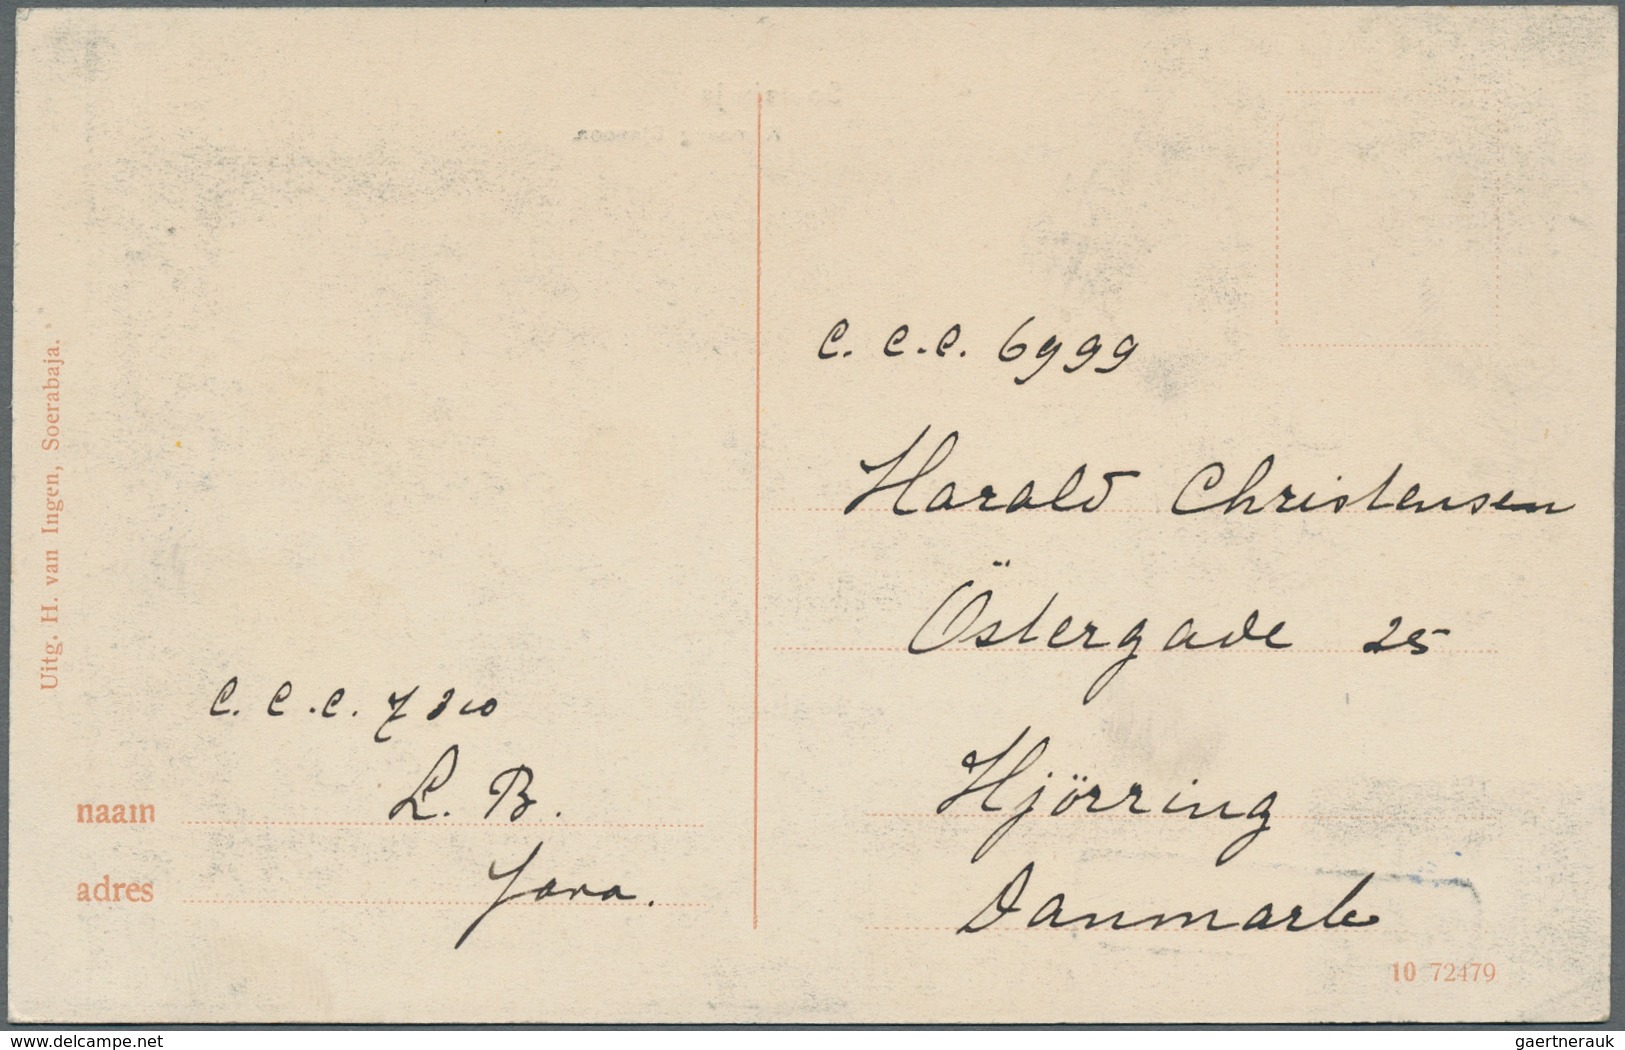 Uitg. H. van Ingen, Soerabaja.
C. C. C. 6999
Harald Christensen
Östergade 25
Hjörring
Danmark
C. C. C. 7310
naam L. B.
adres Java.
10 72479
delcampe.net
gaertnerauk